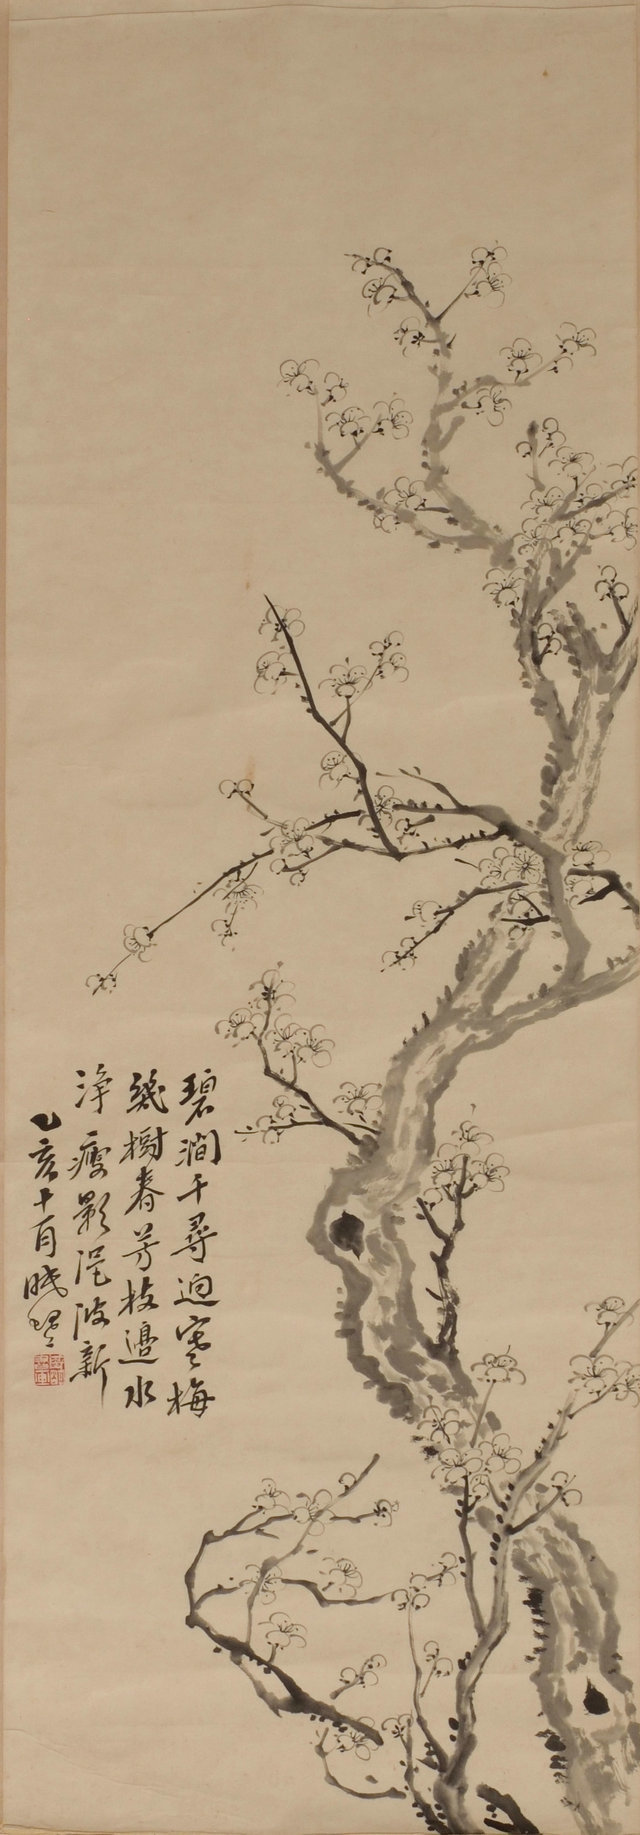 碧澗千尋迥寒梅
幾樹春芳枝邊水
淨瘦影浸波新
乙亥十月曉